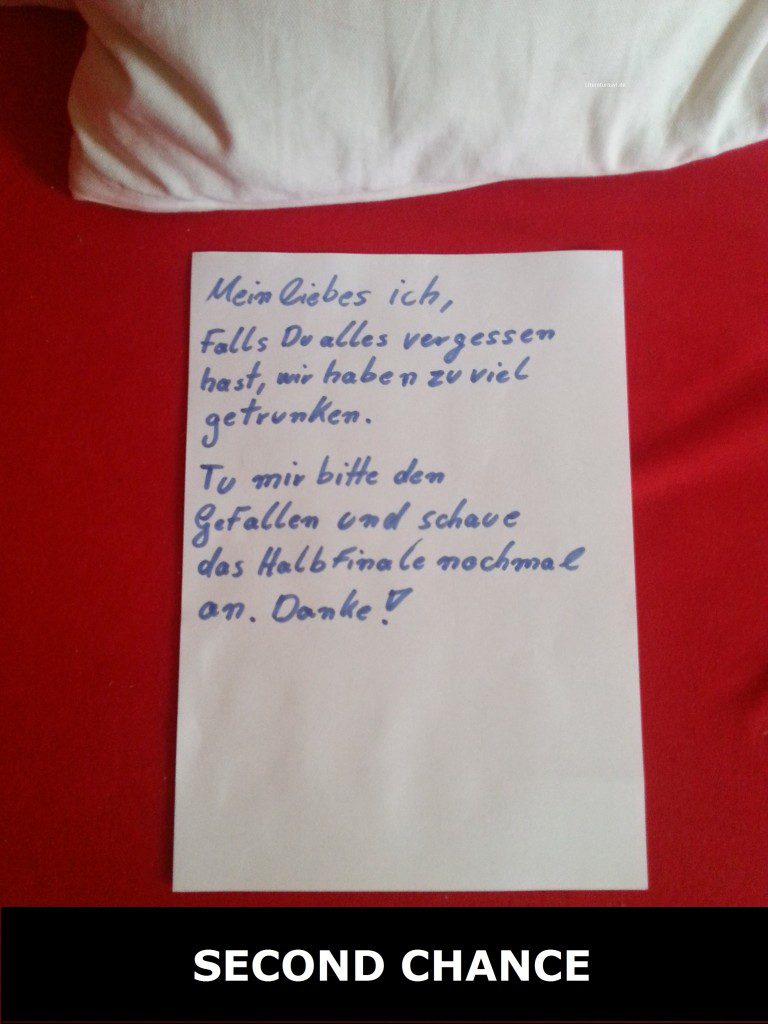 Mein liebes ich,
Falls Du alles vergessen
hast, wir haben zu viel
getrunken.
Tu mir bitte den
Gefallen und schaue
das Halbfinale nochmal
an. Danke!
SECOND CHANCE